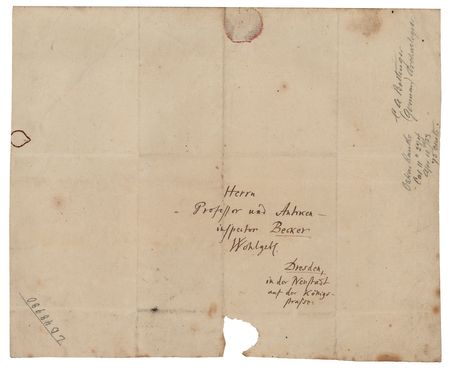 Herrn
Professor und Antiken-
inspector Becker
Wohlgeb.
Dresden,
in der Neustadt
auf der Königs-
straße.
C A Bottiger
(German) Archaeologue